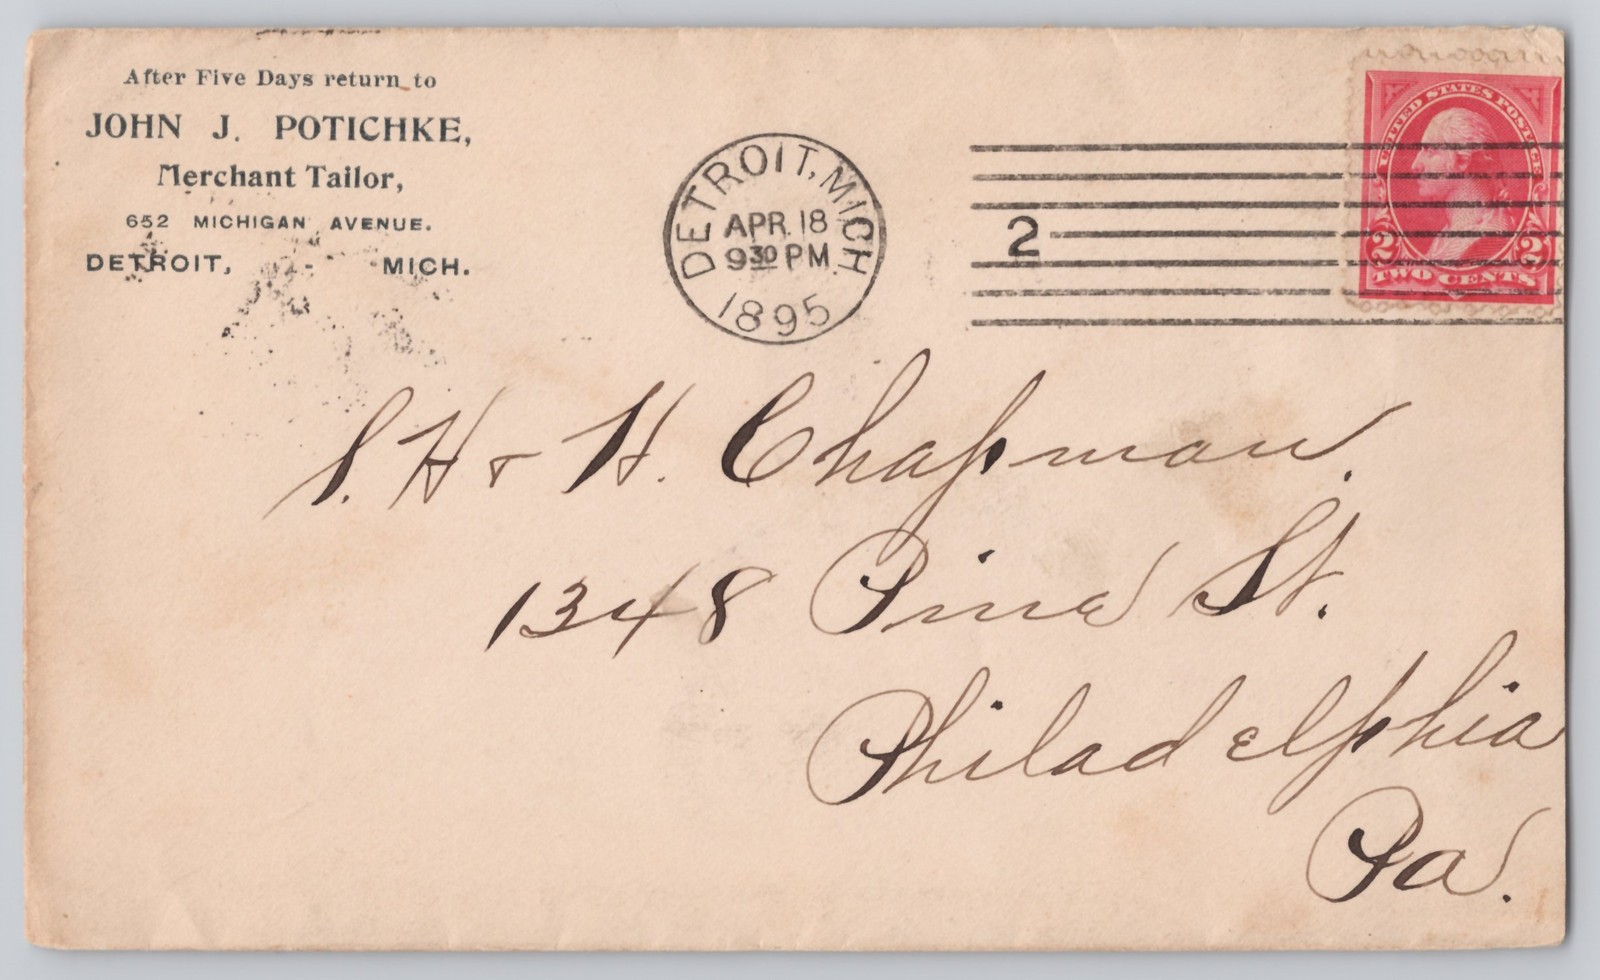 After Five Days return to
JOHN J. POTICHKE,
Merchant Tailor,
652 MICHIGAN AVENUE.
DETROIT, MICH.
DETROIT, MICH
APR 18
9 30 PM
1895
2
UNITED STATES POSTAGE
2 2
TWO CENTS
S. H & H. Chapman.
1348 Pine St.
Philadelphia
Pa.